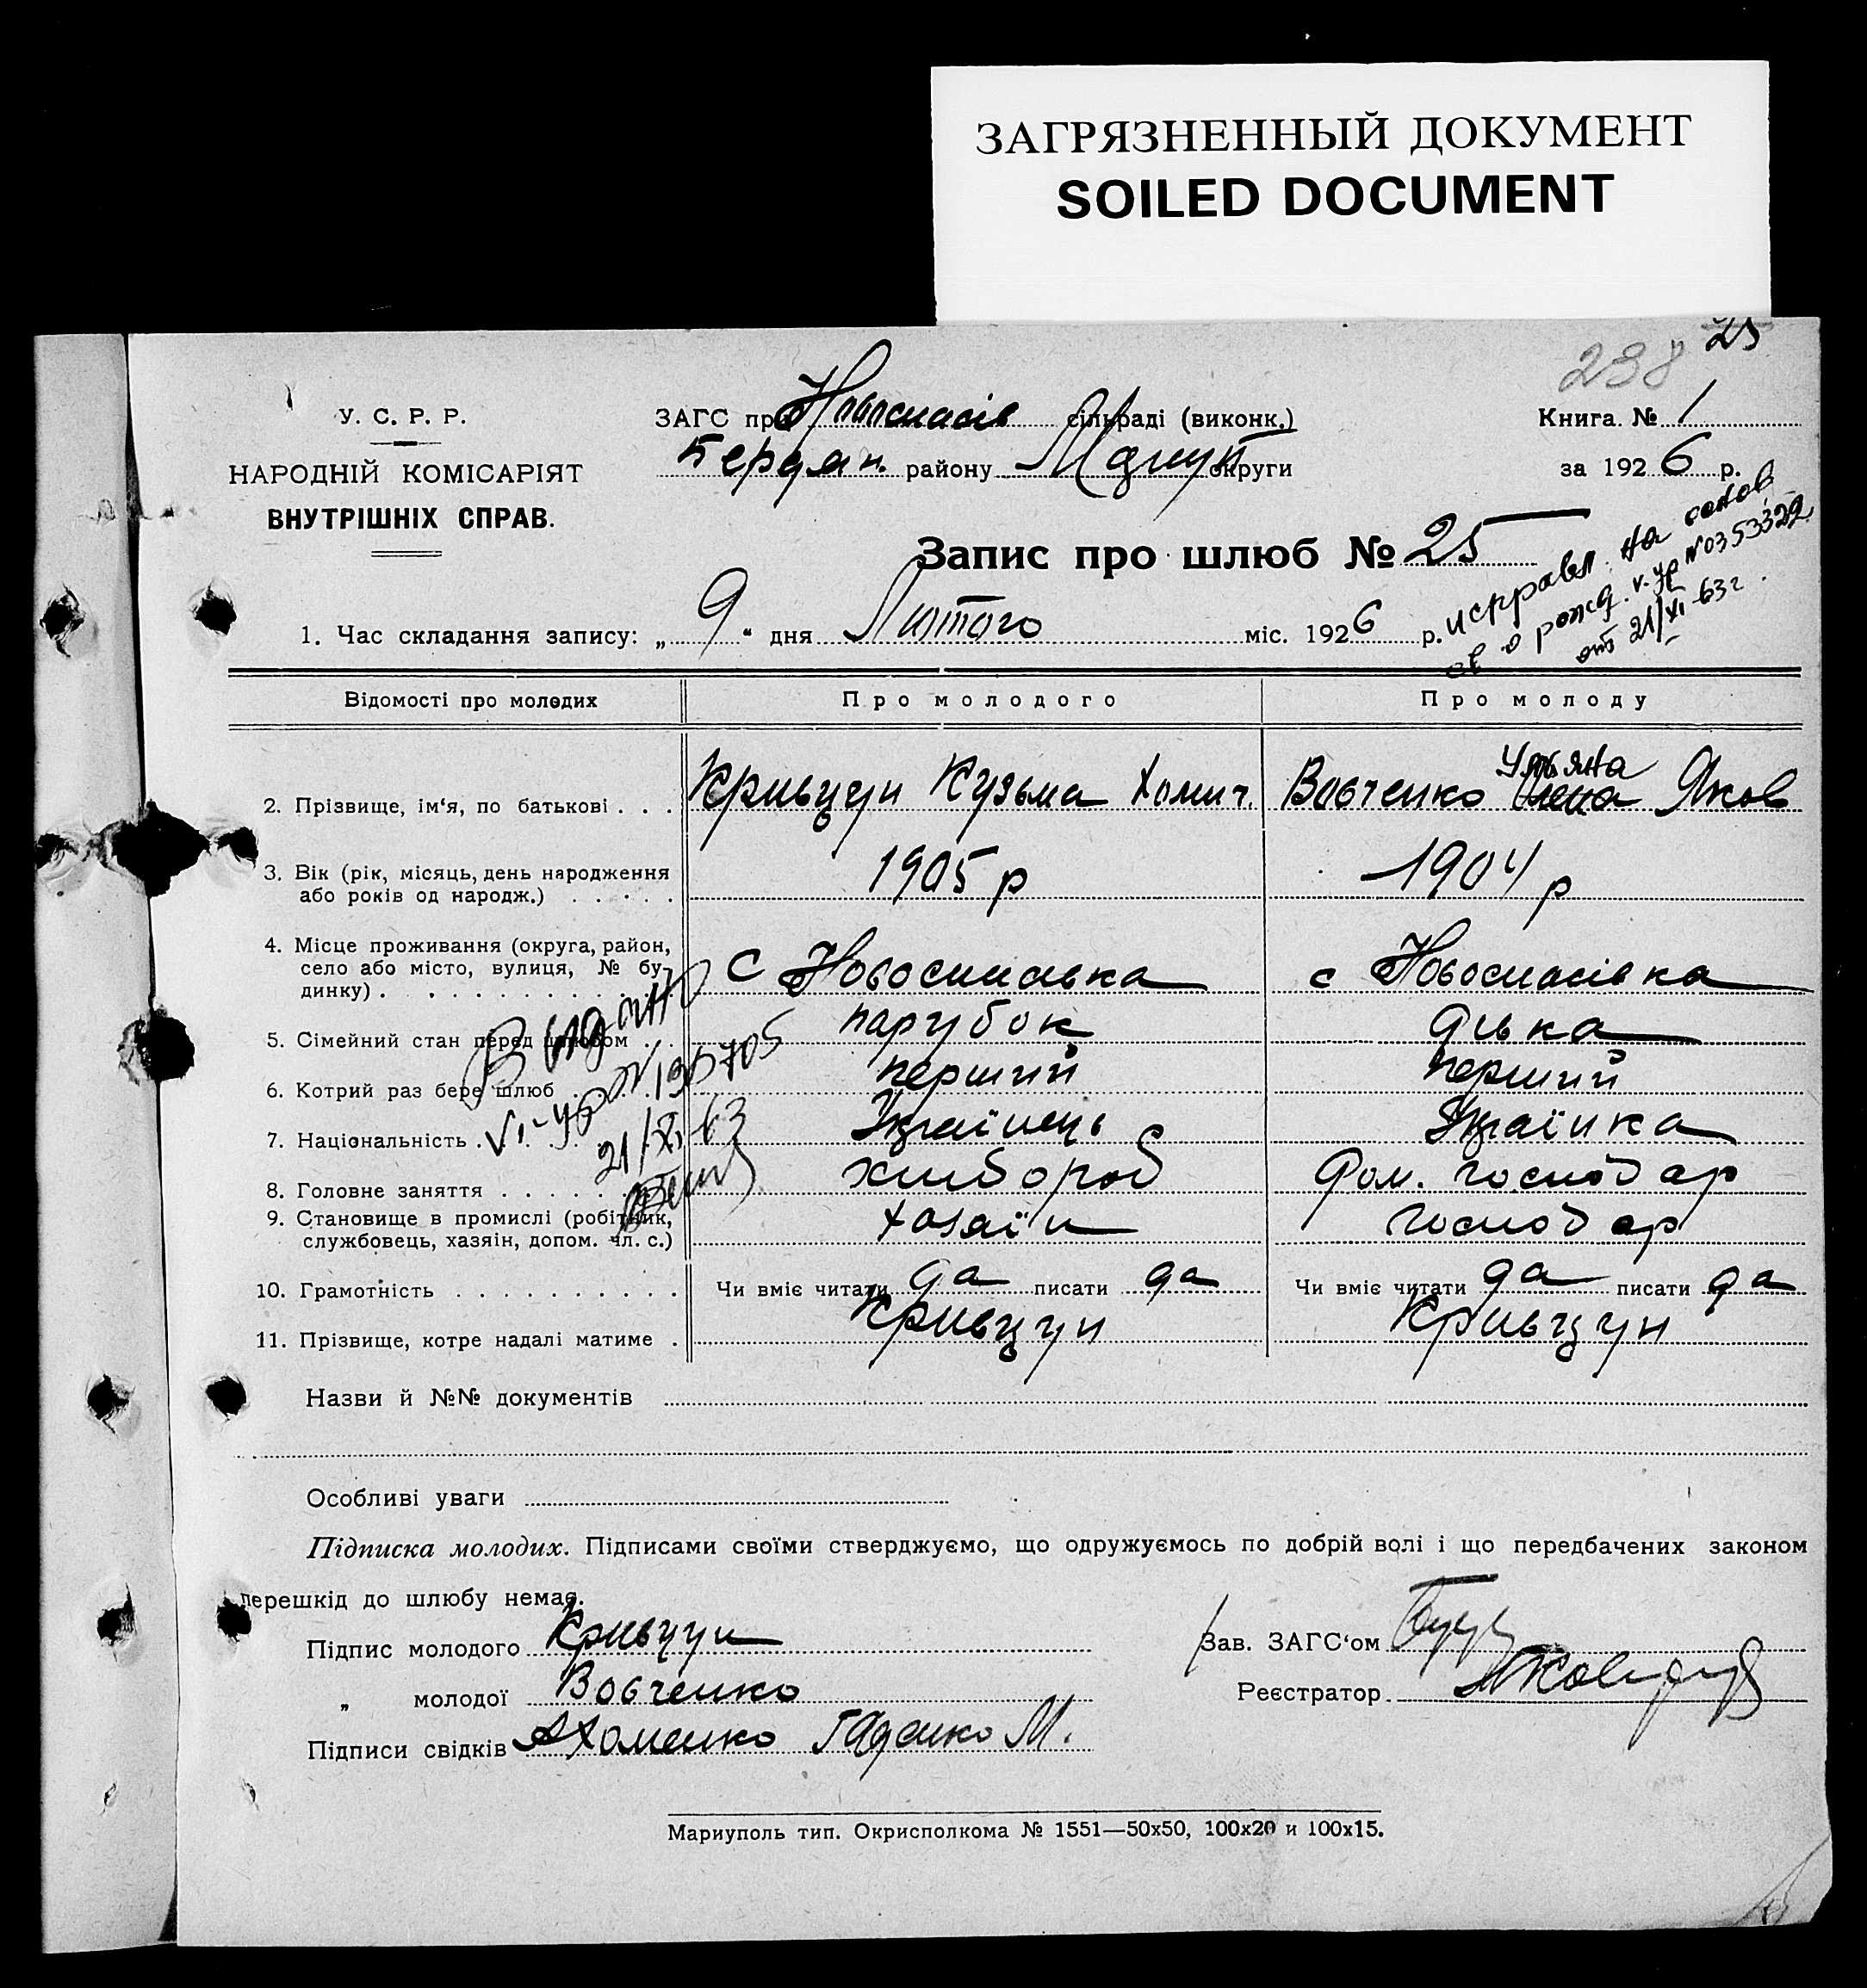 ЗАГРЯЗНЕННЫЙ ДОКУМЕНТ
SOILED DOCUMENT
238 25
У. С. Р. Р.
НАРОДНІЙ КОМІСАРІЯТ
ВНУТРІШНІХ СПРАВ.
ЗАГС при Новоспасів сільраді (виконк.)
Бердян. района Маріуп округи
Книга. № 1
за 1926 р.
Запис про шлюб № 25
исправл. на основ
св о рожд. V-УР № 0353329
от 21/XI-63 г.
1. Час складання запису: „ 9 “ дня Лютого міс. 1926 р.
Відомості про молодих Про молодого Про молоду
2. Прізвище, ім‘я, по батькові . . . Кривцун Кузьма Хомич. Вовченко Олена Ульяна Яков
3. Вік (рік, місяць, день народження
або років од народж.) . . . . . 1905 р 1904 р
4. Місце проживання (округа, район,
село або місто, вулиця, № бу-
динку) . . . . . . . . . . . . . с Новоспасівка с Новоспасівка
5. Сімейний стан перед шлюбом . . парубок дівка
6. Котрий раз бере шлюб . . . . . перший перший
7. Національність . . . . . . . Українець Українка
8. Головне заняття . . . . . . . хлібороб Дом. господар
9. Становище в промислі (робітник,
службовець, хазяїн, допом. чл. с.) хазяїн господар
Видано
21/XI-63
10. Грамотність . . . . . . . . . . Чи вміє читати да писати да Чи вміє читати да писати да
11. Прізвище, котре надалі матиме . Кривцун Кривцун
Назви й №№ документів
Особливі уваги
Підписка молодих. Підписами своїми стверджуємо, що одружуємось по добрій волі і що передбачених законом
перешкід до шлюбу немає.
Підпис молодого Кривцун
„ молодої Вовченко
Підписи свідків А Хоменко Гаденко М.
Зав. ЗАГС‘ом
Реєстратор
Мариуполь тип. Окрисполкома № 1551—50x50, 100x20 и 100x15.